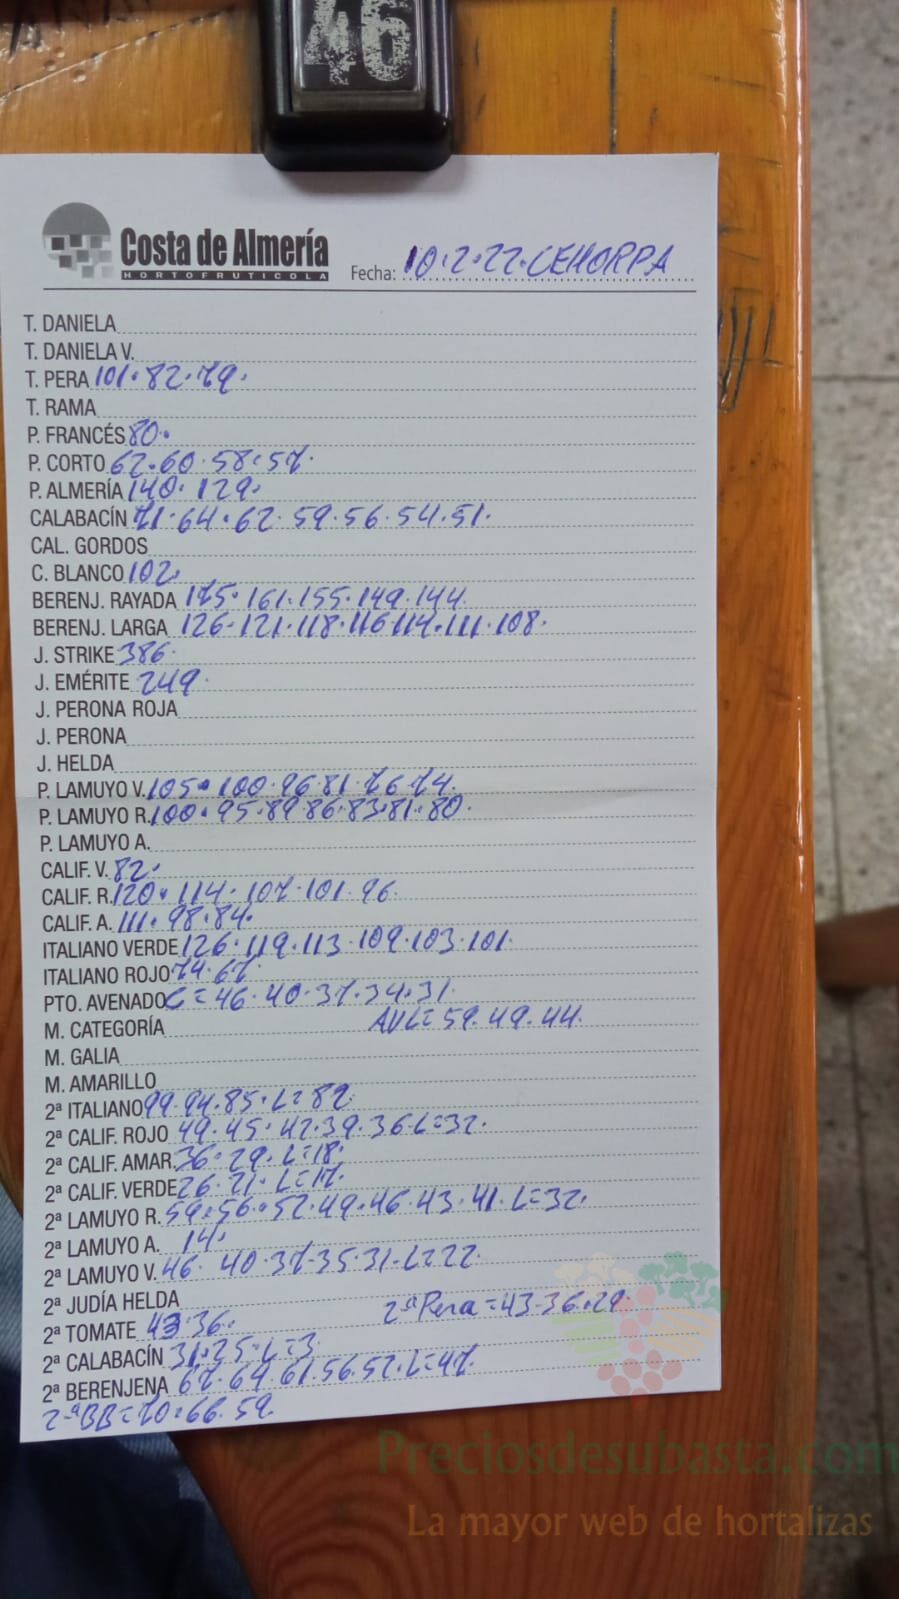 46
Costa de Almería
HORTOFRUTICOLA
Fecha: 10.2.22.CEHORPA
T. DANIELA
T. DANIELA V.
T. PERA 101.82.79.
T. RAMA
P. FRANCÉS 80.
P. CORTO 62.60.58.57.
P. ALMERÍA 140.129.
CALABACÍN 71.64.62.59.56.54.51.
CAL. GORDOS
C. BLANCO 102.
BERENJ. RAYADA 175.161.155.149.144.
BERENJ. LARGA 126.121.118.116.114.111.108.
J. STRIKE 386.
J. EMÉRITE 249.
J. PERONA ROJA
J. PERONA
J. HELDA
P. LAMUYO V. 105.100.96.81.76.74.
P. LAMUYO R. 100.95.89.86.83.81.80.
P. LAMUYO A.
CALIF. V. 82.
CALIF. R. 120.114.107.101.96.
CALIF. A. 111.98.84.
ITALIANO VERDE 126.119.113.109.103.101.
ITALIANO ROJO 74.67.
PTO. AVENADO C=46.40.37.34.31.
M. CATEGORÍA AVL=59.49.44.
M. GALIA
M. AMARILLO
2ª ITALIANO 99.94.85.L=82.
2ª CALIF. ROJO 49.45.42.39.36.L=32.
2ª CALIF. AMAR. 36.29.L=18.
2ª CALIF. VERDE 26.21.L=17.
2ª LAMUYO R. 59.56.52.49.46.43.41.L=32.
2ª LAMUYO A. 14.
2ª LAMUYO V. 46.40.37.35.31.L=22.
2ª JUDÍA HELDA 2ªPera=43.36.29.
2ª TOMATE 43.36.
2ª CALABACÍN 31.25.L=3.
2ª BERENJENA 67.64.61.56.52.L=47.
2ªBB=70.66.59.
Preciosdesubasta.com
La mayor web de hortalizas